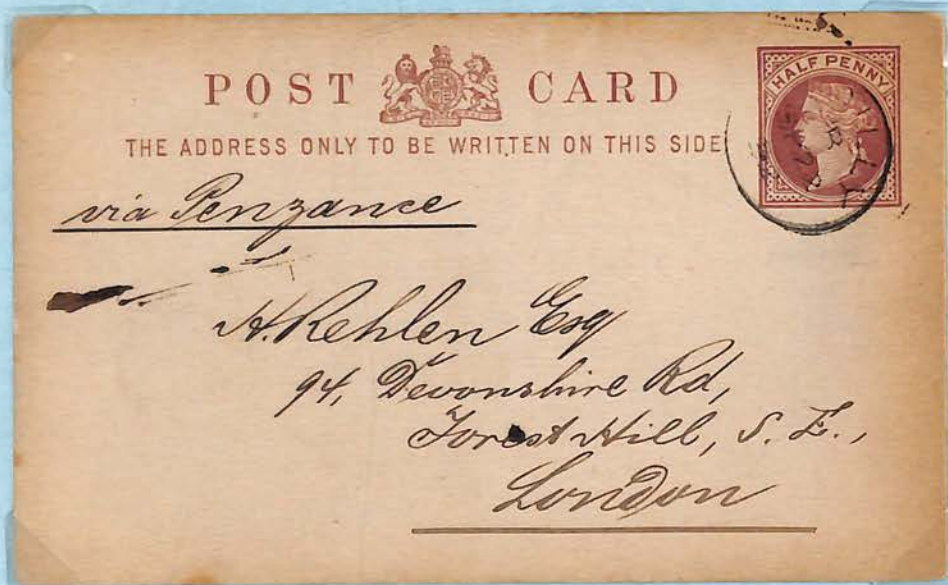 POST CARD
HALF PENNY
THE ADDRESS ONLY TO BE WRITTEN ON THIS SIDE
via Penzance
H. Rehlen Esq
94, Devonshire Rd,
Forest Hill, S. E.,
London